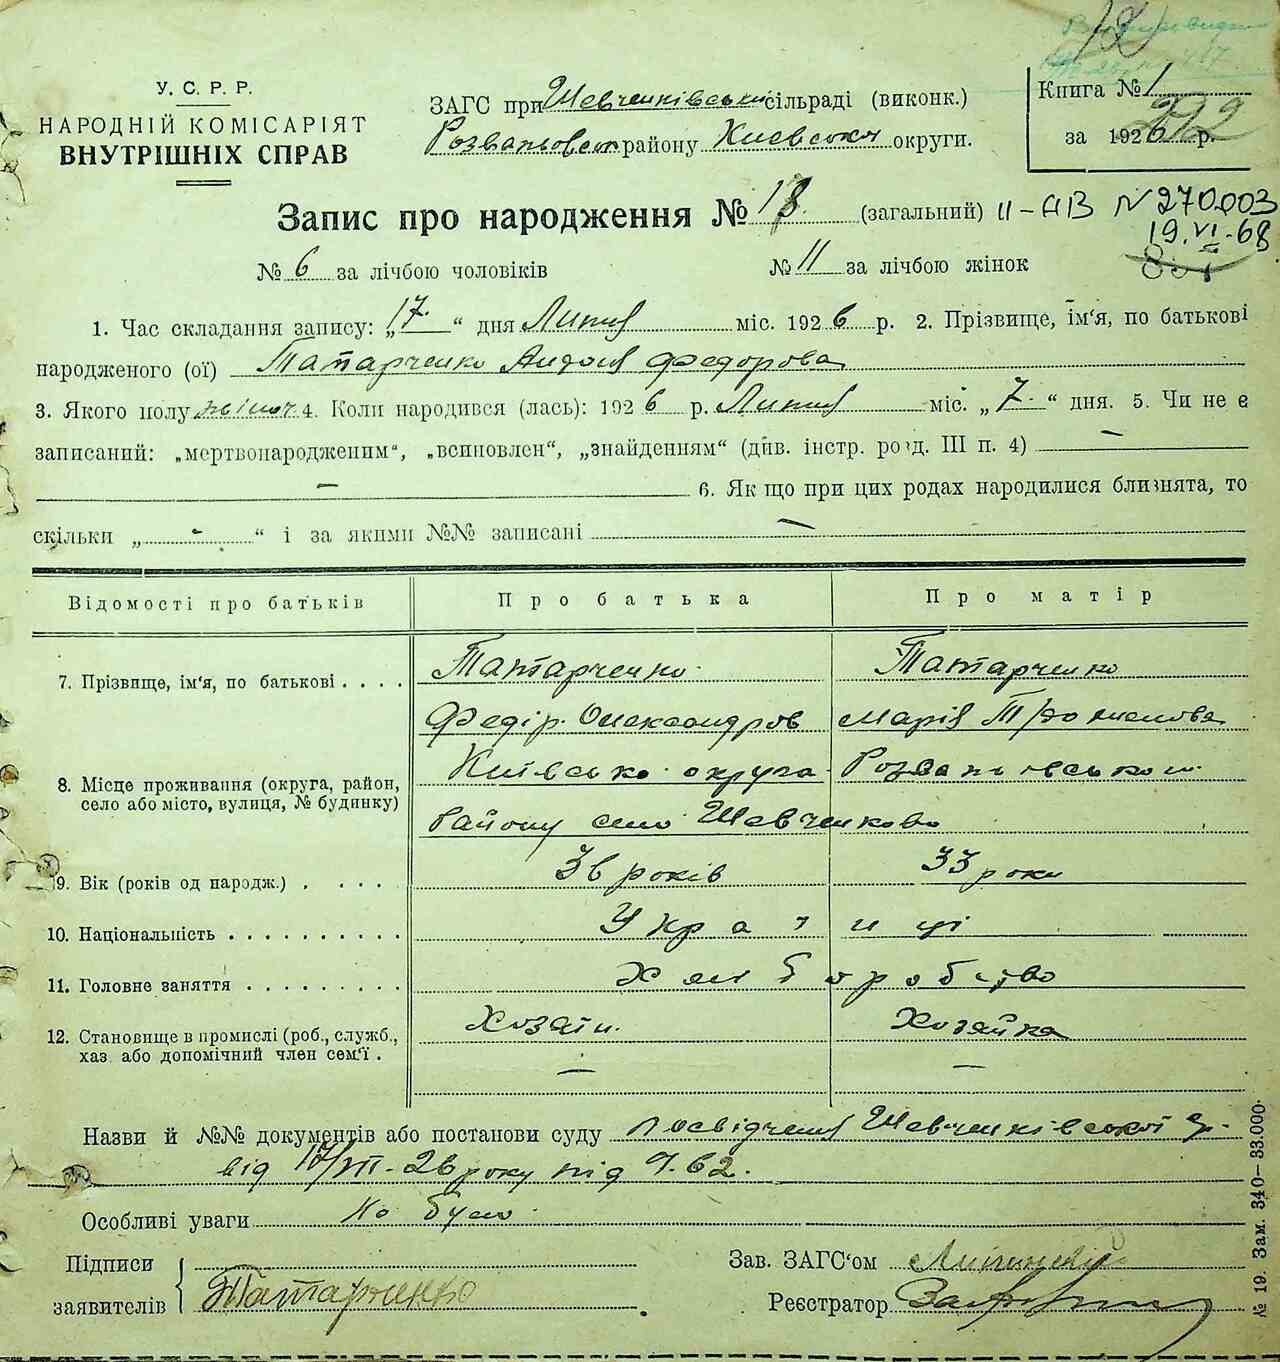 У. С. Р. Р.
НАРОДНІЙ КОМІСАРІЯТ
ВНУТРІШНІХ СПРАВ
ЗАГС при Шевченківськ сільраді (виконк.)
району Киевської округи.
Книга № 1
за 1926 р.
292
Запис про народження № 18 (загальний) II-АВ № 270003
19.VI-68
№ 6 за лічбою чоловіків № 11 за лічбою жінок
1. Час складання запису: „17“ дня Липня міс. 1926 р. 2. Прізвище, ім‘я, по батькові
народженого (ої) Татарченко Федорова
3. Якого полу жіноч. 4. Коли народився (лась): 1926 р. Липня міс. „7“ дня. 5. Чи не є
записаний: „мертвонародженим“, „всиновлен“, „знайденням“ (див. інстр. розд. III п. 4) —
— 6. Як що при цих родах народилися близнята, то
скільки „ - “ і за якими №№ записані —
Відомості про батьків Про батька Про матір
7. Прізвище, ім‘я, по батькові . . . . Татарченко Татарченко
Федір Олександров Марія
8. Місце проживання (округа, район, село або місто, вулиця, № будинку) Київсько округа
Району село Шевченково
9. Вік (років од народж.) . . . . . 36 років 33 роки
10. Національність . . . . . . . . . . Українці
11. Головне заняття . . . . . . . . . Хліборобство
12. Становище в промислі (роб., служб., хаз. або допомічний член сем‘ї . Хозяїн Хозяйка
— —
Назви й №№ документів або постанови суду Посвідчення Шевченківської
від 17/VII-26 року під ч. 62.
Особливі уваги Не було
Підписи
заявителів Татарченко
Зав. ЗАГС‘ом
Реєстратор
№ 19. Зам. 340–33.000.